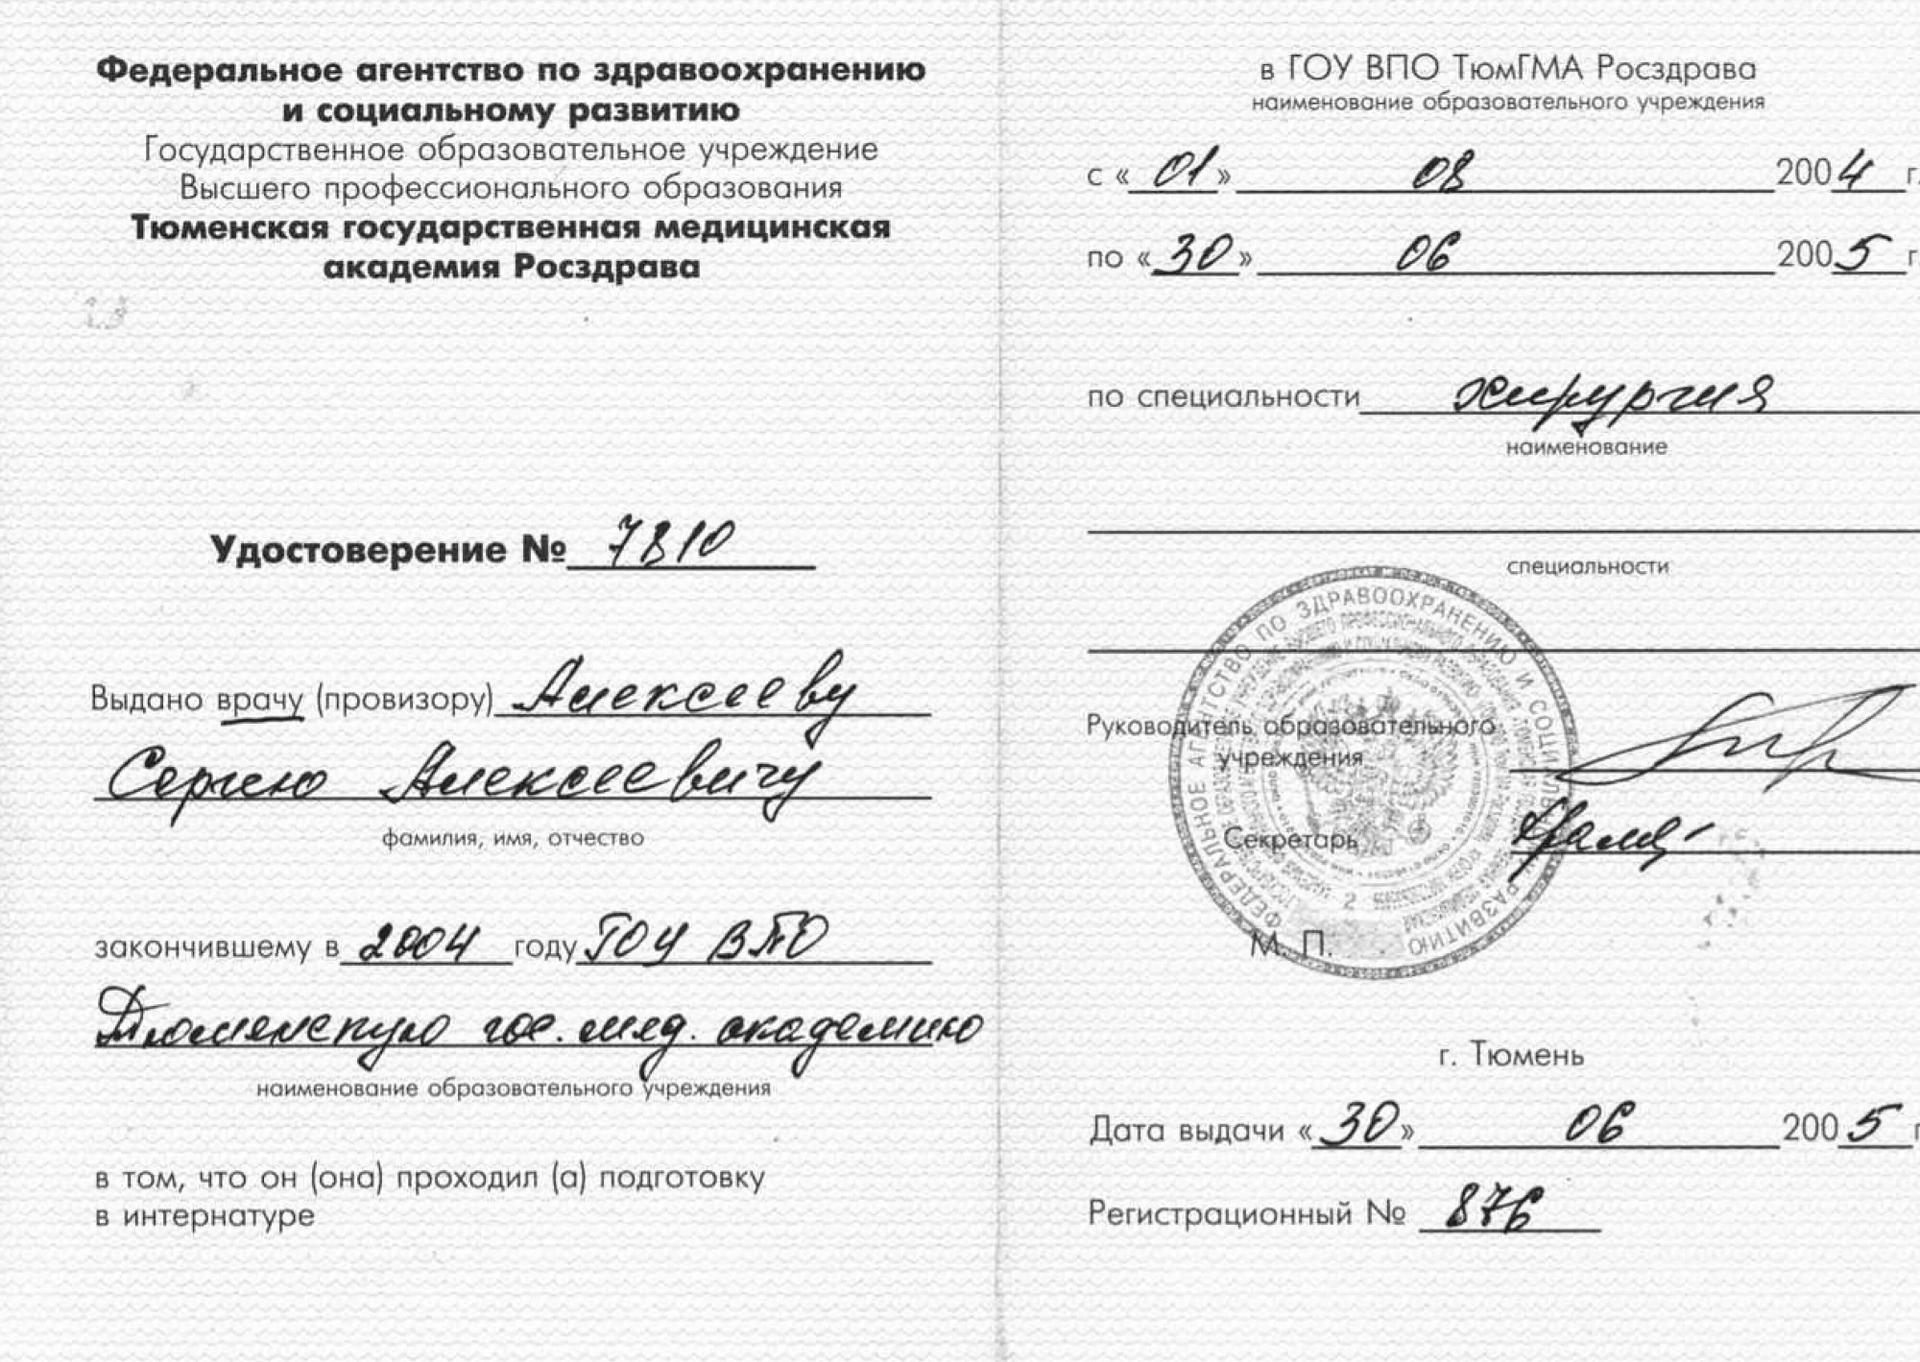 Федеральное агентство по здравоохранению
и социальному развитию
Государственное образовательное учреждение
Высшего профессионального образования
Тюменская государственная медицинская
академия Росздрава
Удостоверение № 7810
Выдано врачу (провизору) Алексееву
Сергею Алексеевичу
фамилия, имя, отчество
закончившему в 2004 году ГОУ ВПО
Тюменскую гос. мед. академию
наименование образовательного учреждения
в том, что он (она) проходил (а) подготовку
в интернатуре
в ГОУ ВПО ТюмГМА Росздрава
наименование образовательного учреждения
с «01» 08 2004 г.
по «30» 06 2005 г.
по специальности хирургия
наименование
специальности
ФЕДЕРАЛЬНОЕ АГЕНТСТВО ПО ЗДРАВООХРАНЕНИЮ И СОЦИАЛЬНОМУ РАЗВИТИЮ
Руководитель образовательного
учреждения
Секретарь
2
М. П.
г. Тюмень
Дата выдачи «30» 06 2005 г
Регистрационный № 876